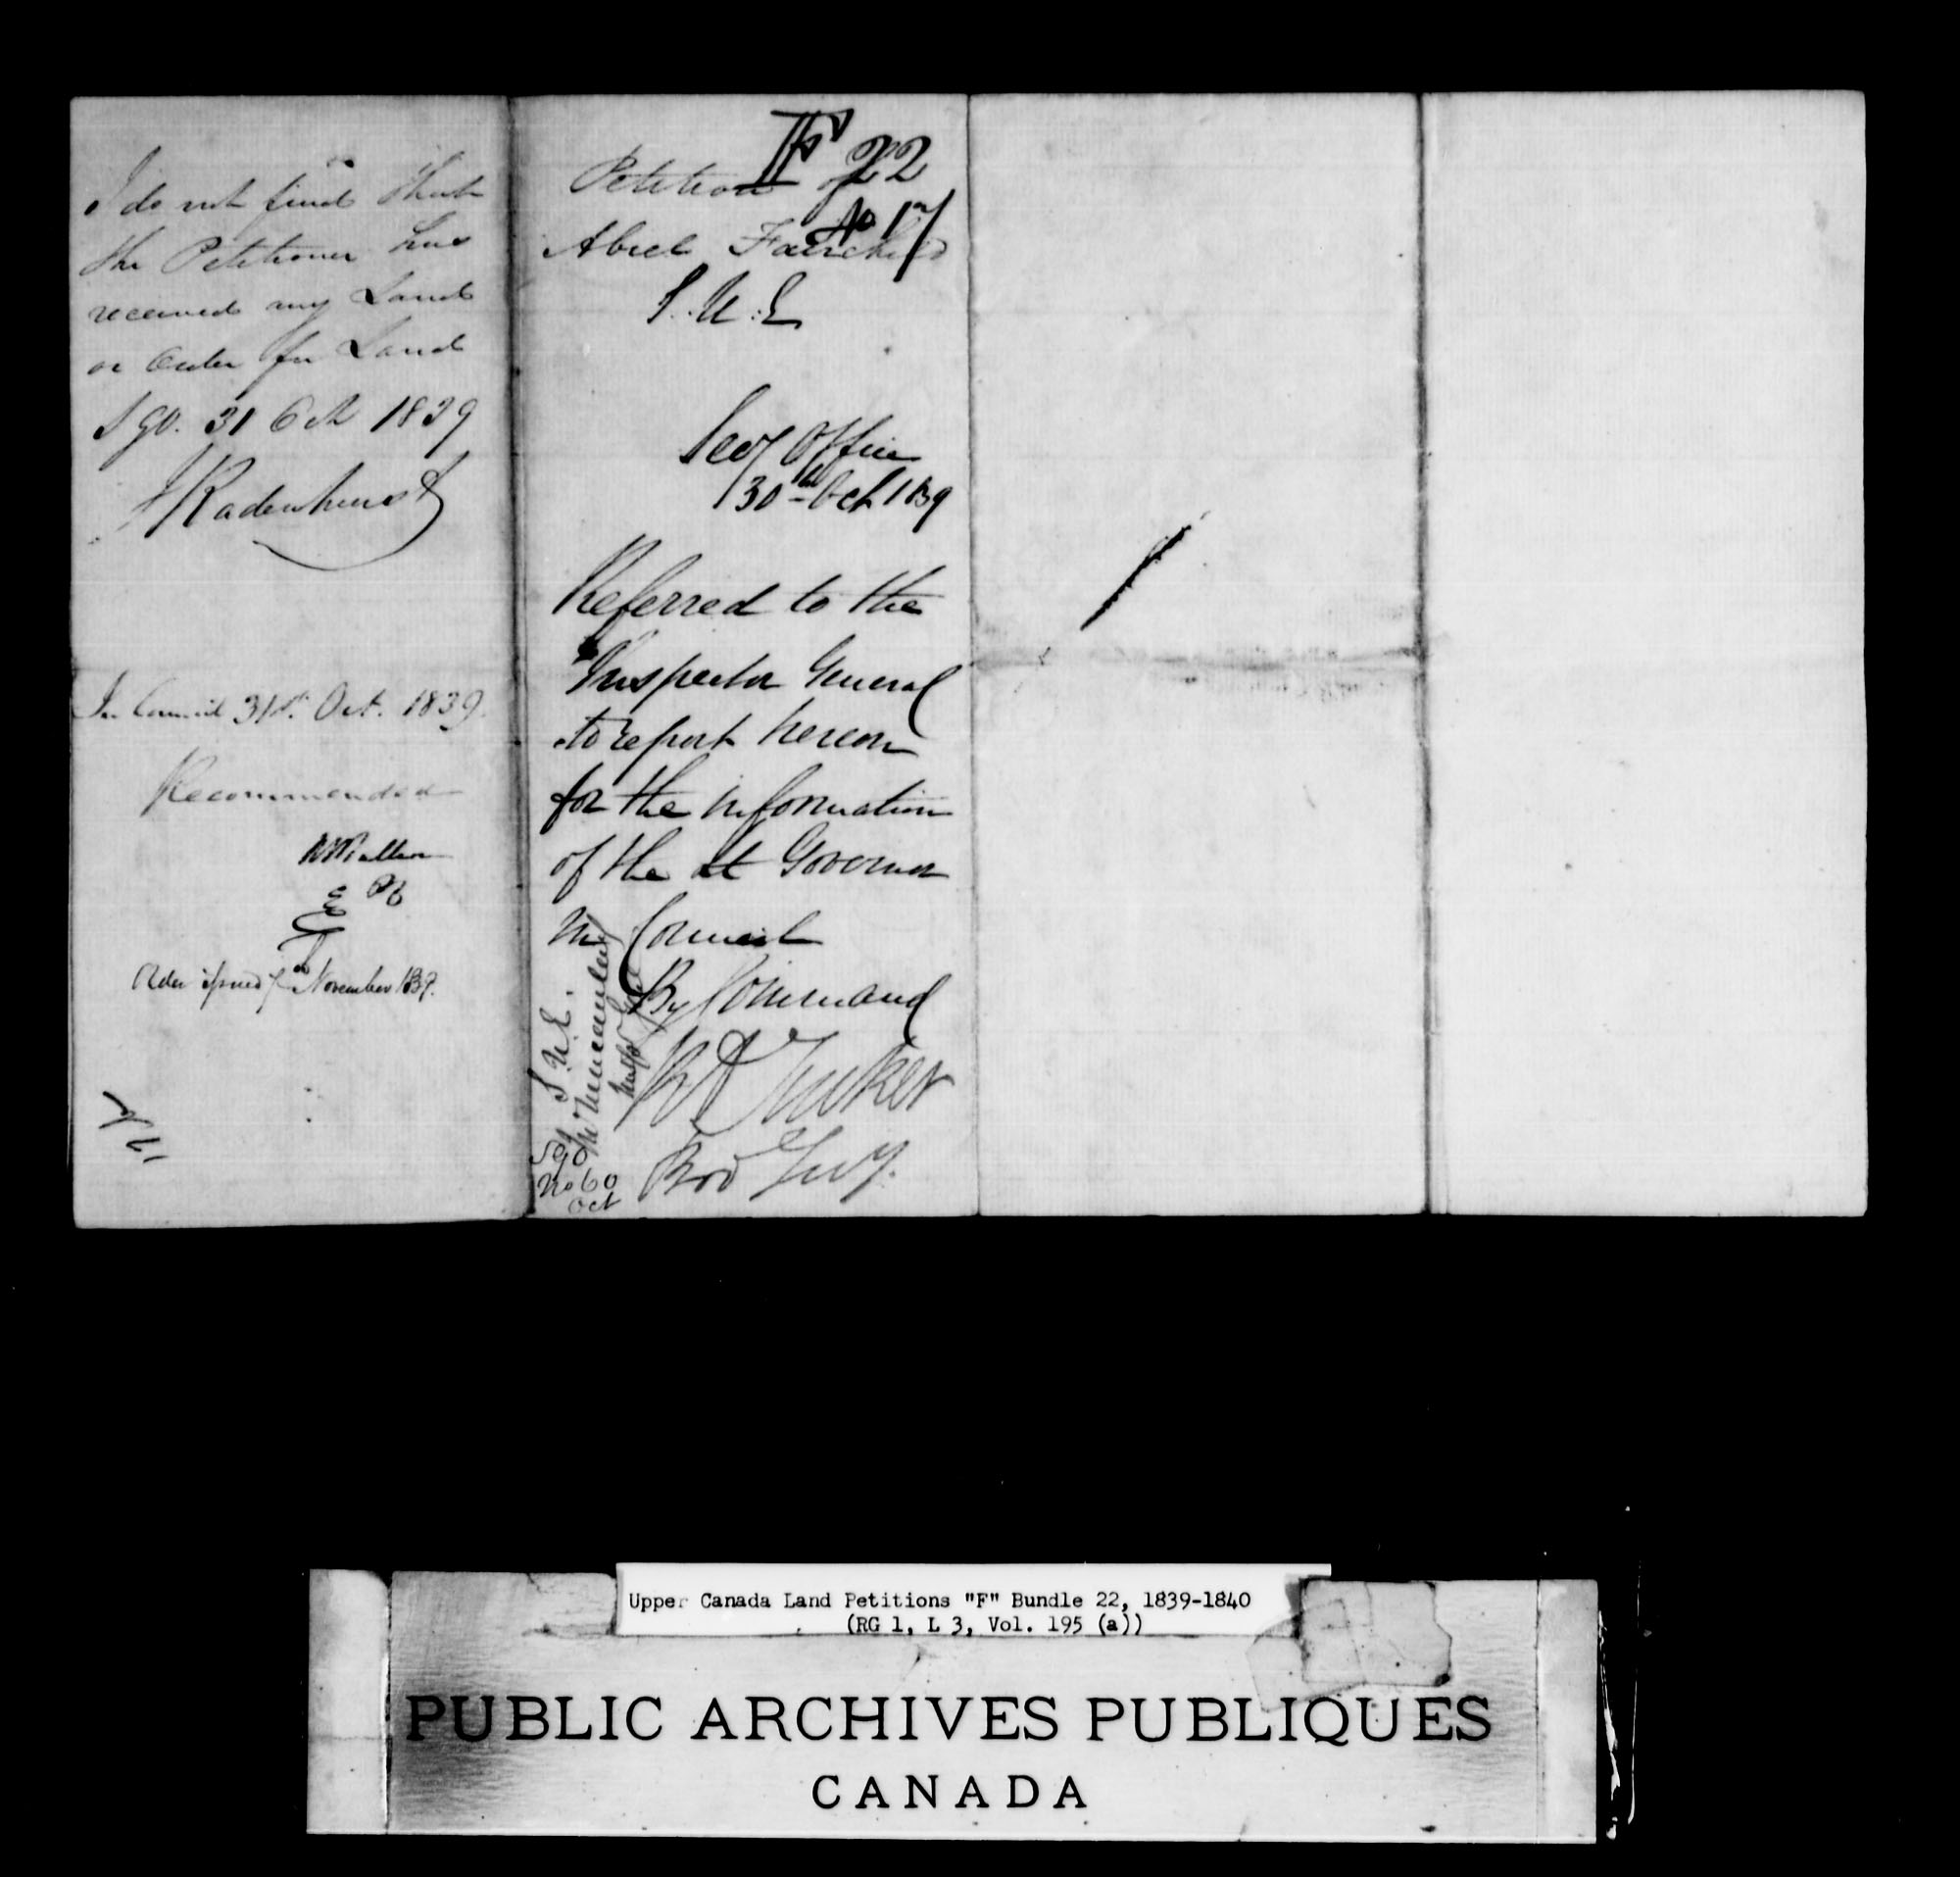 I do not find that
the Petitioner has
received any Land
or Order for Land
S G O. 31 Oct 1839
J Radenhurst
In Council 31st. Oct. 1839.
Recommended
Order issued 7th November 1839.
F 22
Petition of
No 17
Abiel Fairchild
S. U. E
Secy Office
30th Oct 1839
Referred to the
Inspector General
to report hereon
for the information
of the Lt Governor
in Council
By Command
R A Tucker
Prov Secy.
S. U. E.
Sgo
No 60
Oct
Upper Canada Land Petitions "F" Bundle 22, 1839-1840
(RG 1, L 3, Vol. 195 (a))
PUBLIC ARCHIVES PUBLIQUES
CANADA